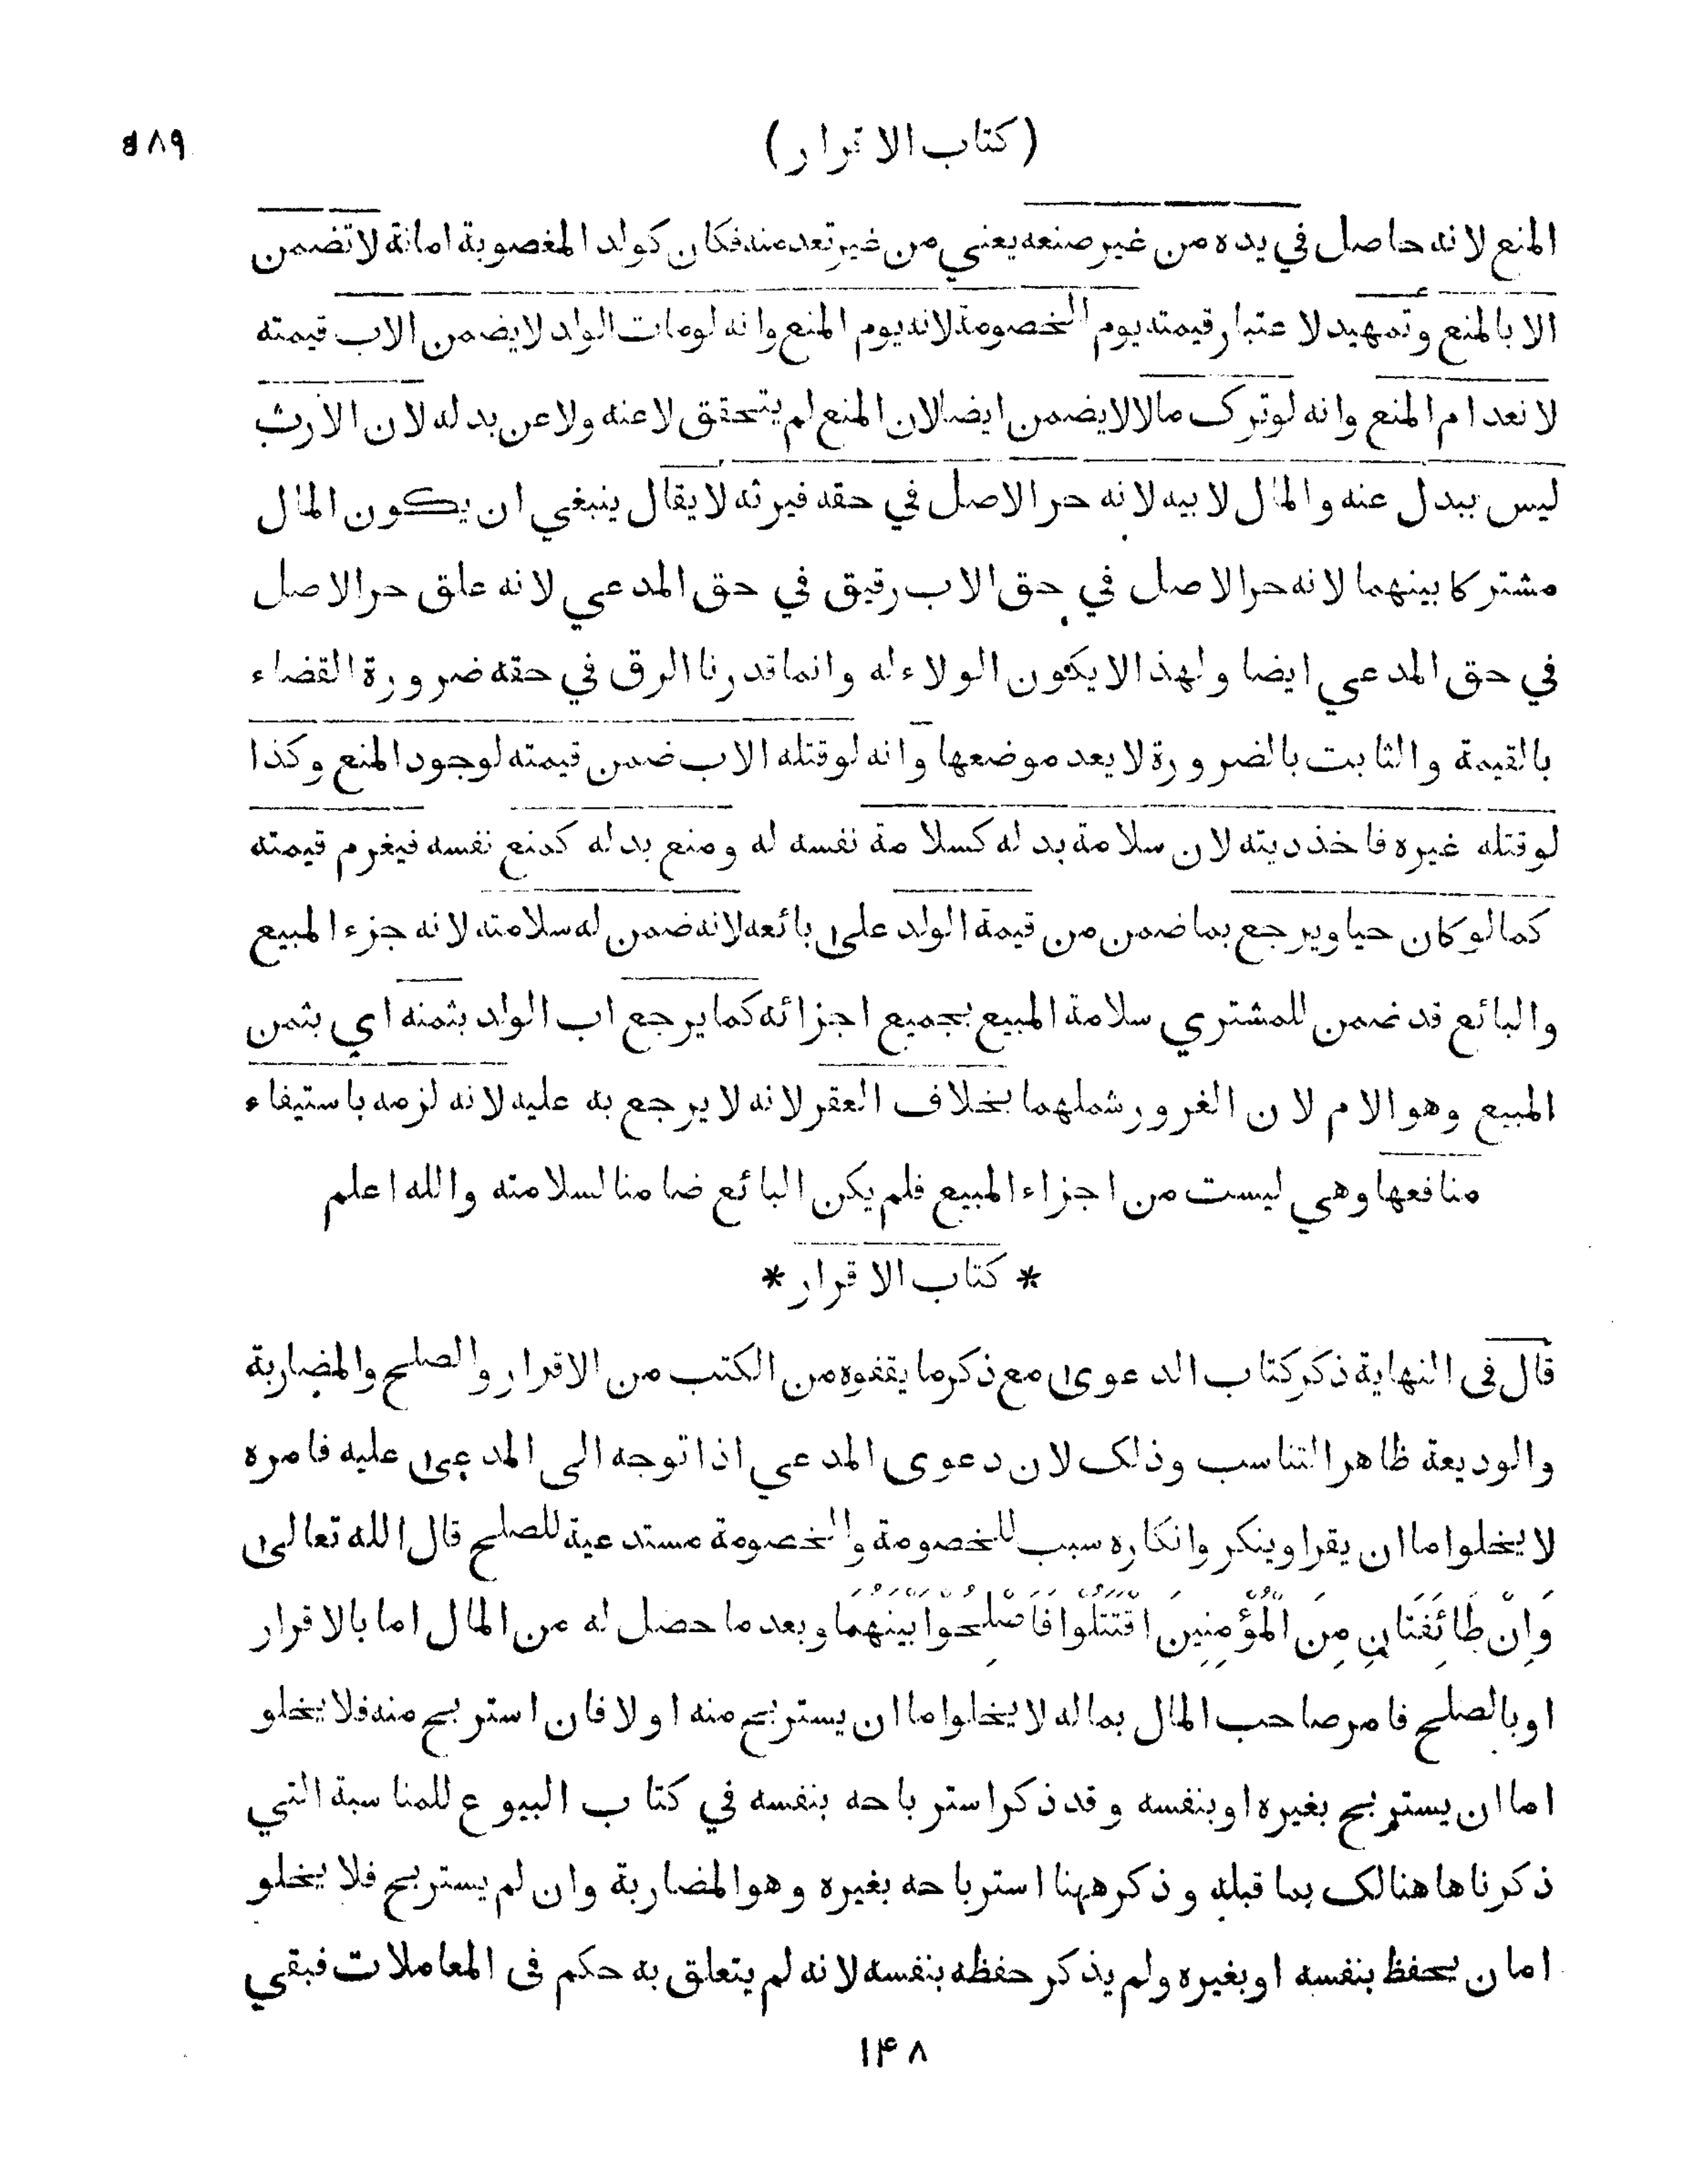 (كتاب الاقرار)
٥٨٩
المنع لانه حاصل في يده من غير صنعه يعني من غير تعد منه فكان كولد المغصوبة امانة لا تضمن
الا بالمنع وتمهيد لا عتبار قيمته يوم الخصومة لانه يوم المنع وانه لومات الولد لا يضمن الاب قيمته
لا نعدام المنع وانه لوترك مالا لا يضمن ايضا لان المنع لم يتحقق لا عنه ولا عن بدله لان الارث
ليس ببدل عنه والمال لابيه لانه حر الاصل في حقه فيرثه لا يقال ينبغي ان يكون المال
مشتركا بينهما لانه حر الاصل في حق الاب رقيق في حق المدعي لانه علق حر الاصل
في حق المدعي ايضا ولهذا لا يكون الولاء له وانما قدرنا الرق في حقه ضرورة القضاء
بالقيمة والثابت بالضرورة لا يعد موضعها وانه لوقتله الاب ضمن قيمته لوجود المنع وكذا
لوقتله غيره فاخذ ديته لان سلامة بدله كسلامة نفسه له ومنع بدله كمنع نفسه فيغرم قيمته
كما لوكان حيا ويرجع بما ضمن من قيمة الولد على بائعه لانه ضمن له سلامته لانه جزء المبيع
والبائع قد ضمن للمشتري سلامة المبيع بجميع اجزائه كما يرجع اب الولد بثمنه اي بثمن
المبيع وهو الام لان الغرور شملهما بخلاف العقر لانه لا يرجع به عليه لانه لزمه باستيفاء
منافعها وهي ليست من اجزاء المبيع فلم يكن البائع ضامنا لسلامته والله اعلم
* كتاب الاقرار *
قال في النهاية ذكر كتاب الدعوى مع ذكر ما يقفوه من الكتب من الاقرار والصلح والمضاربة
والوديعة ظاهر التناسب وذلك لان دعوى المدعي اذا توجه الى المدعى عليه فامره
لا يخلوا ما ان يقرا وينكر وانكاره سبب للخصومة والخصومة مستدعية للصلح قال الله تعالى
وَاِنْ طَائِفَتَانِ مِنَ الْمُؤْمِنِينَ اقْتَتَلُوا فَاَصْلِحُوْا بَيْنَهُمَا وبعد ما حصل له من المال اما بالاقرار
اوبالصلح فامر صاحب المال بماله لا يخلوا ما ان يستربح منه اولا فان استربح منه فلا يخلو
اما ان يستربح بغيره اوبنفسه وقد ذكر استرباحه بنفسه في كتاب البيوع للمناسبة التي
ذكرناها هنالك بما قبله وذكر ههنا استرباحه بغيره وهو المضاربة وان لم يستربح فلا يخلو
اما ن يحفظ بنفسه اوبغيره ولم يذكر حفظه بنفسه لانه لم يتعلق به حكم في المعاملات فبقي
١٤٨